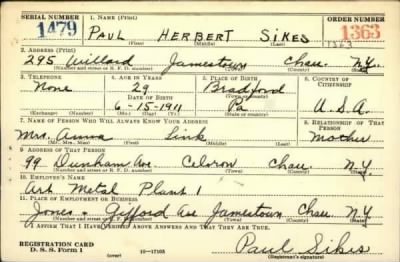 SERIAL NUMBER 1. NAME (Print) ORDER NUMBER
1479 PAUL HERBERT SIKES 1363
1363
(First) (Middle) (Last)
2. ADDRESS (Print)
295 Willard Jamestown Chau. N.Y.
(Number and street or R. F. D. number) (Town) (County) (State)
3. TELEPHONE 4. AGE IN YEARS 5. PLACE OF BIRTH 6. COUNTRY OF CITIZENSHIP
None 29 Bradford
DATE OF BIRTH (Town or county)
6-15-1911 Pa U.S.A.
(Exchange) (No.) (Mo.) (Day) (Yr.) (State or country)
7. NAME OF PERSON WHO WILL ALWAYS KNOW YOUR ADDRESS 8. RELATIONSHIP OF THAT PERSON
Mrs. Anna Link Mother
(Mr., Mrs., Miss) (First) (Middle) (Last)
9. ADDRESS OF THAT PERSON
99 Dunham Ave Celoron Chau N.Y.
(Number and street or R. F. D. number) (Town) (County) (State)
10. EMPLOYER'S NAME
Art Metal Plant 1
11. PLACE OF EMPLOYMENT OR BUSINESS
Jones & Gifford Ave Jamestown Chau N.Y.
(Number and street or R. F. D. number) (Town) (County) (State)
I AFFIRM THAT I HAVE VERIFIED ABOVE ANSWERS AND THAT THEY ARE TRUE.
REGISTRATION CARD
D. S. S. Form 1 (over) 16-17105 Paul Sikes
(Registrant's signature)